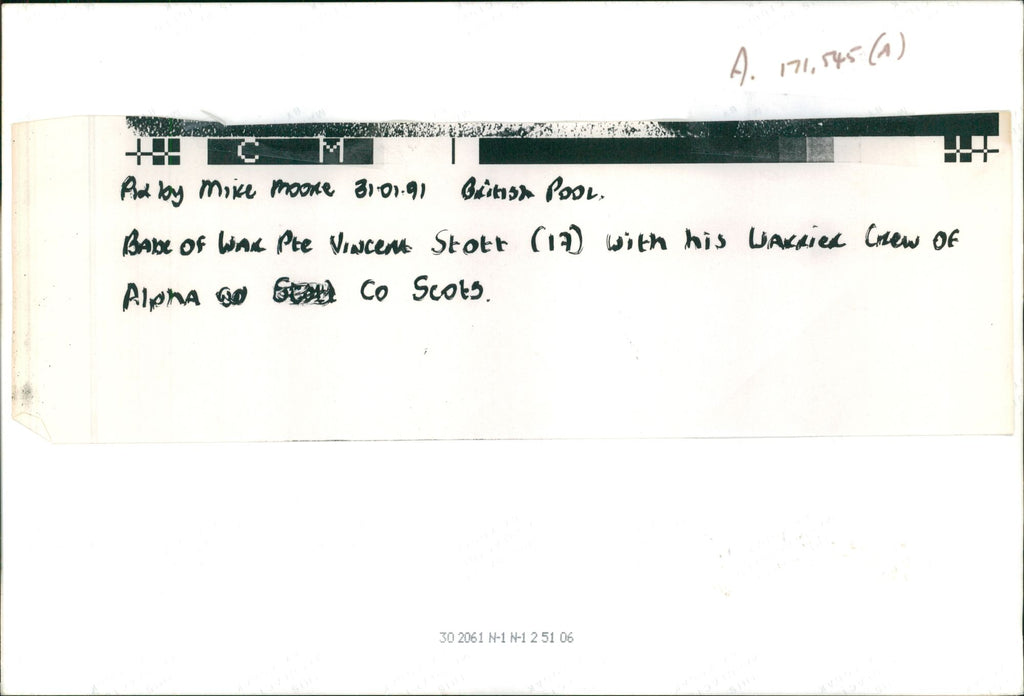 A. 171,545 (A)
C M
Pix by Mike Moore 31.01.91 British Pool.
Babe of War Pte Vincent Stott (17) with his Warrier Crew of
Alpha Co Scots.
30 2061 N-1 N-1 2 51 06